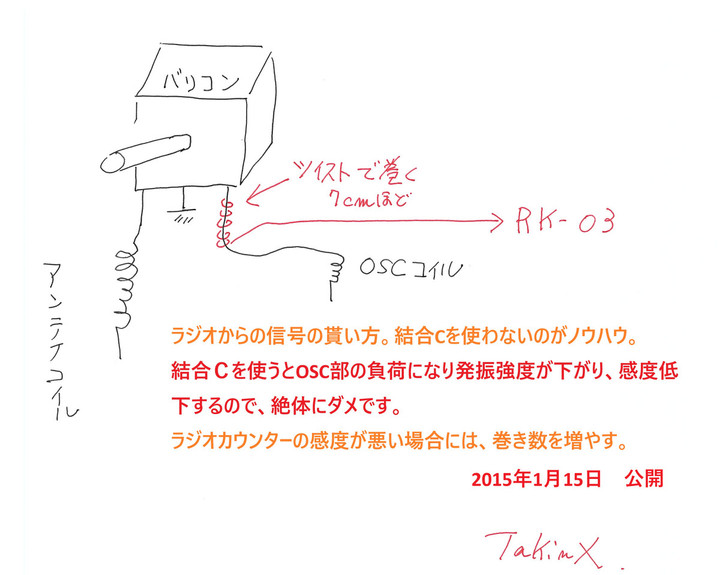 バリコン
ツイストで巻く
7cmほど
RK-03
OSCコイル
アンテナコイル
ラジオからの信号の貰い方。結合Cを使わないのがノウハウ。
結合Ｃを使うとOSC部の負荷になり発振強度が下がり、感度低
下するので、絶体にダメです。
ラジオカウンターの感度が悪い場合には、巻き数を増やす。
2015年1月15日　公開
TaKinX.